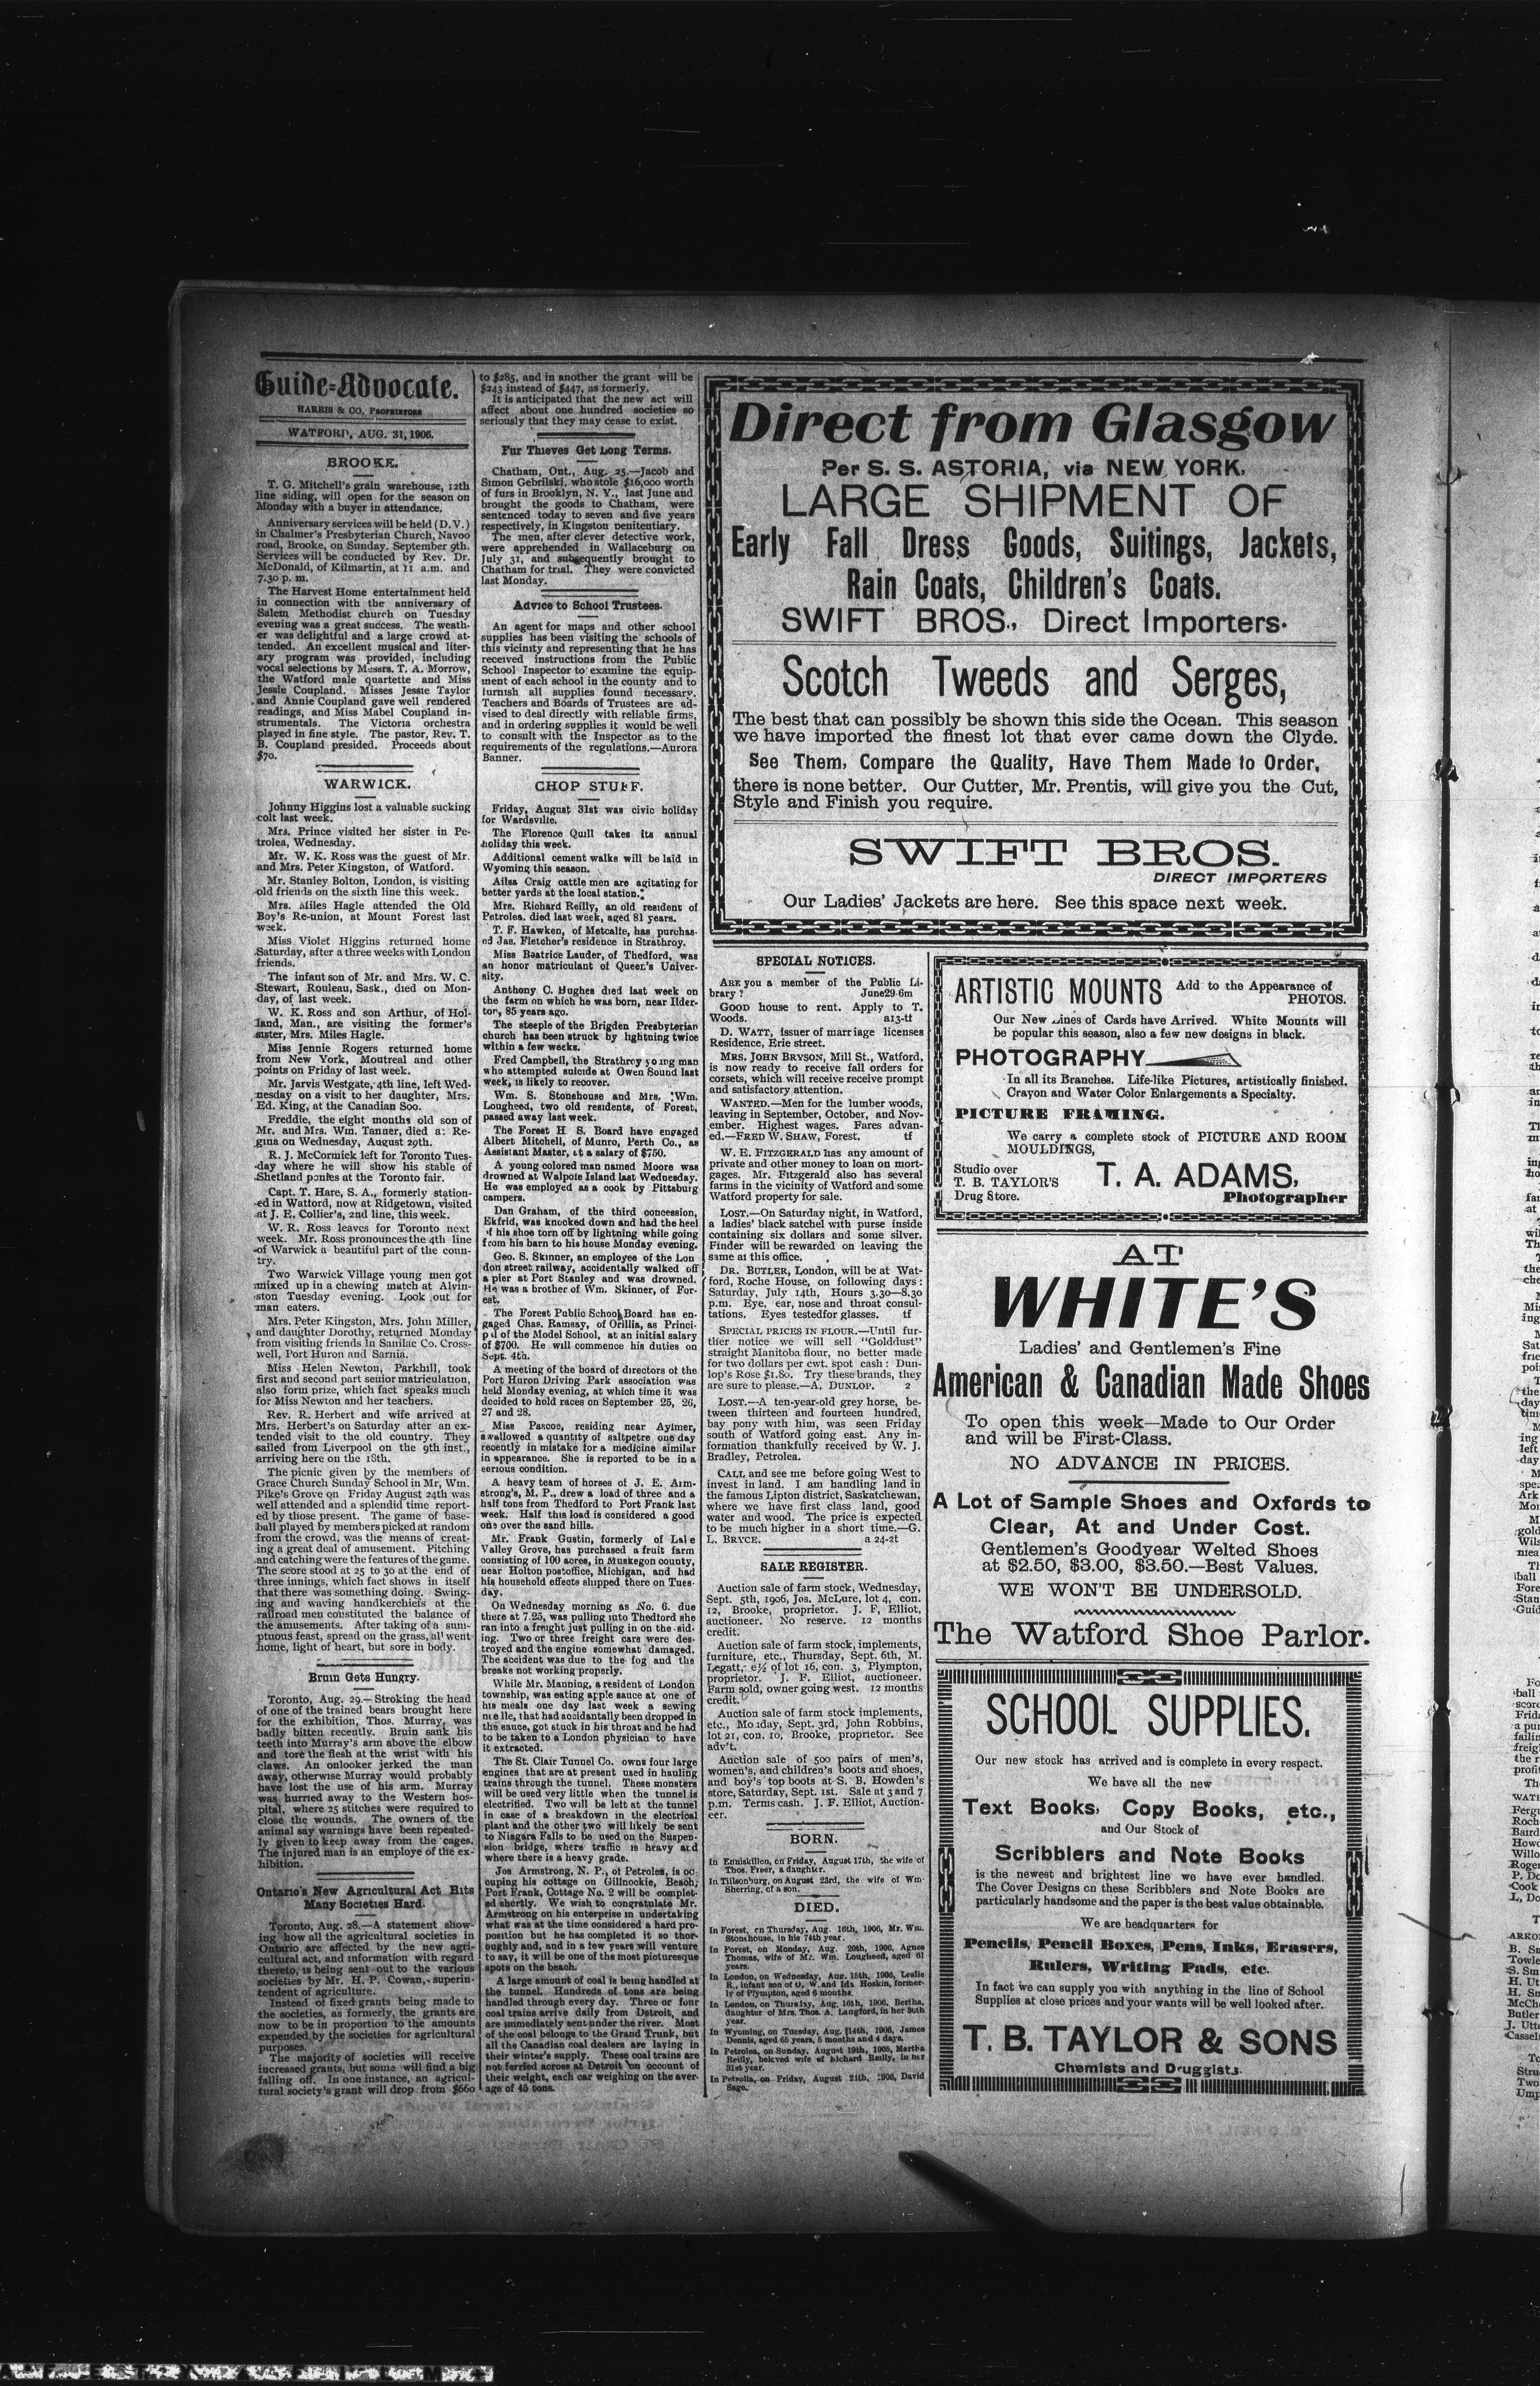 Guide=Advocate.
HARRIS & CO, PROPRIETORS
WATFORD, AUG. 31, 1906.
BROOKE.
T. G. Mitchell's grain warehouse, 12th
line siding, will open for the season on
Monday with a buyer in attendance.
Anniversary services will be held (D.V.)
in Chalmer's Presbyterian Church, Navoo
road, Brooke, on Sunday, September 9th.
Services will be conducted by Rev. Dr.
McDonald, of Kilmartin, at 11 a.m. and
7.30 p. m.
The Harvest Home entertainment held
in connection with the anniversary of
Salem Methodist church on Tuesday
evening was a great success. The weath-
er was delightful and a large crowd at-
tended. An excellent musical and liter-
ary program was provided, including
vocal selections by Messrs. T. A. Morrow,
the Watford male quartette and Miss
Jessie Coupland. Misses Jessie Taylor
and Annie Coupland gave well rendered
readings, and Miss Mabel Coupland in-
strumentals. The Victoria orchestra
played in fine style. The pastor, Rev. T.
B. Coupland presided. Proceeds about
$70.
WARWICK.
Johnny Higgins lost a valuable sucking
colt last week.
Mrs. Prince visited her sister in Pe-
trolea, Wednesday.
Mr. W. K. Ross was the guest of Mr.
and Mrs. Peter Kingston, of Watford.
Mr. Stanley Bolton, London, is visiting
old friends on the sixth line this week.
Mrs. Miles Hagle attended the Old
Boy's Re-union, at Mount Forest last
week.
Miss Violet Higgins returned home
Saturday, after a three weeks with London
friends.
The infant son of Mr. and Mrs. W. C.
Stewart, Rouleau, Sask., died on Mon-
day, of last week.
W. K. Ross and son Arthur, of Hol-
land, Man., are visiting the former's
sister, Mrs. Miles Hagle.
Miss Jennie Rogers returned home
from New York, Montreal and other
points on Friday of last week.
Mr. Jarvis Westgate, 4th line, left Wed-
nesday on a visit to her daughter, Mrs.
Ed. King, at the Canadian Soo.
Freddie, the eight months old son of
Mr. and Mrs. Wm. Tanner, died at Re-
gina on Wednesday, August 29th.
R. J. McCormick left for Toronto Tues-
day where he will show his stable of
Shetland ponies at the Toronto fair.
Capt. T. Hare, S. A., formerly station-
ed in Watford, now at Ridgetown, visited
at J. E. Collier's, 2nd line, this week.
W. R. Ross leaves for Toronto next
week. Mr. Ross pronounces the 4th line
of Warwick a beautiful part of the coun-
try.
Two Warwick Village young men got
mixed up in a chewing match at Alvin-
ston Tuesday evening. Look out for
man eaters.
Mrs. Peter Kingston, Mrs. John Miller,
and daughter Dorothy, returned Monday
from visiting friends in Sanilac Co. Cross-
well, Port Huron and Sarnia.
Miss Helen Newton, Parkhill, took
first and second part senior matriculation,
also form prize, which fact speaks much
for Miss Newton and her teachers.
Rev. R. Herbert and wife arrived at
Mrs. Herbert's on Saturday after an ex-
tended visit to the old country. They
sailed from Liverpool on the 9th inst.,
arriving here on the 18th.
The picnic given by the members of
Grace Church Sunday School in Mr, Wm.
Pike's Grove on Friday August 24th was
well attended and a splendid time report-
ed by those present. The game of base-
ball played by members picked at random
from the crowd, was the means of creat-
ing a great deal of amusement. Pitching
and catching were the features of the game.
The score stood at 25 to 30 at the end of
three innings, which fact shows in itself
that there was something doing. Swing-
ing and waving handkerchiefs at the
railroad men constituted the balance of
the amusements. After taking of a sum-
ptuous feast, spread on the grass, all went
home, light of heart, but sore in body.
Bruin Gets Hungry.
Toronto, Aug. 29.—Stroking the head
of one of the trained bears brought here
for the exhibition, Thos. Murray, was
badly bitten recently. Bruin sank his
teeth into Murray's arm above the elbow
and tore the flesh at the wrist with his
claws. An onlooker jerked the man
away, otherwise Murray would probably
have lost the use of his arm. Murray
was hurried away to the Western hos-
pital, where 25 stitches were required to
close the wounds. The owners of the
animal say warnings have been repeated-
ly given to keep away from the cages.
The injured man is an employe of the ex-
hibition.
Ontario's New Agricultural Act Hits
Many Societies Hard.
Toronto, Aug. 28.—A statement show-
ing how all the agricultural societies in
Ontario are affected by the new agri-
cultural act, and information with regard
thereto, is being sent out to the various
societies by Mr. H. P. Cowan, superin-
tendent of agriculture.
Instead of fixed grants being made to
the societies, as formerly, the grants are
now to be in proportion to the amounts
expended by the societies for agricultural
purposes.
The majority of societies will receive
increased grants, but some will find a big
falling off. In one instance, an agricul-
tural society's grant will drop from $660
to $285, and in another the grant will be
$243 instead of $447, as formerly.
It is anticipated that the new act will
affect about one hundred societies so
seriously that they may cease to exist.
Fur Thieves Get Long Terms.
Chatham, Ont., Aug. 25.—Jacob and
Simon Gebrilski, who stole $16,000 worth
of furs in Brooklyn, N. Y., last June and
brought the goods to Chatham, were
sentenced today to seven and five years
respectively, in Kingston penitentiary.
The men, after clever detective work,
were apprehended in Wallaceburg on
July 31, and subsequently brought to
Chatham for trial. They were convicted
last Monday.
Advice to School Trustees.
An agent for maps and other school
supplies has been visiting the schools of
this vicinity and representing that he has
received instructions from the Public
School Inspector to examine the equip-
ment of each school in the county and to
furnish all supplies found necessary.
Teachers and Boards of Trustees are ad-
vised to deal directly with reliable firms,
and in ordering supplies it would be well
to consult with the Inspector as to the
requirements of the regulations.—Aurora
Banner.
CHOP STUFF.
Friday, August 31st was civic holiday
for Wardsville.
The Florence Quill takes its annual
holiday this week.
Additional cement walks will be laid in
Wyoming this season.
Ailsa Craig cattle men are agitating for
better yards at the local station.
Mrs. Richard Reilly, an old resident of
Petrolea, died last week, aged 81 years.
T. F. Hawken, of Metcalfe, has purchas-
ed Jas. Fletcher's residence in Strathroy.
Miss Beatrice Lauder, of Thedford, was
an honor matriculant of Queen's Univer-
sity.
Anthony C. Hughes died last week on
the farm on which he was born, near Ilder-
ton, 85 years ago.
The steeple of the Brigden Presbyterian
church has been struck by lightning twice
within a few weeks.
Fred Campbell, the Strathroy young man
who attempted suicide at Owen Sound last
week, is likely to recover.
Wm. S. Stonehouse and Mrs. Wm.
Lougheed, two old residents, of Forest,
passed away last week.
The Forest H S. Board have engaged
Albert Mitchell, of Munro, Perth Co., as
Assistant Master, at a salary of $750.
A young colored man named Moore was
drowned at Walpole Island last Wednesday.
He was employed as a cook by Pittsburg
campers.
Dan Graham, of the third concession,
Ekfrid, was knocked down and had the heel
of his shoe torn off by lightning while going
from his barn to his house Monday evening.
Geo. S. Skinner, an employee of the Lon
don street railway, accidentally walked off
a pier at Port Stanley and was drowned.
He was a brother of Wm. Skinner, of For-
est.
The Forest Public School Board has en-
gaged Chas. Ramsay, of Orillia, as Princi-
pal of the Model School, at an initial salary
of $700. He will commence his duties on
Sept. 4th.
A meeting of the board of directors of the
Port Huron Driving Park association was
held Monday evening, at which time it was
decided to hold races on September 25, 26,
27 and 28.
Miss Pascoe, residing near Aylmer,
swallowed a quantity of saltpetre one day
recently in mistake for a medicine similar
in appearance. She is reported to be in a
serious condition.
A heavy team of horses of J. E. Arm-
strong's, M. P., drew a load of three and a
half tons from Thedford to Port Frank last
week. Half this load is considered a good
one over the sand hills.
Mr. Frank Gustin, formerly of Lake
Valley Grove, has purchased a fruit farm
consisting of 100 acres, in Muskegon county,
near Holton postoffice, Michigan, and had
his household effects shipped there on Tues-
day.
On Wednesday morning as No. 6. due
there at 7.25, was pulling into Thedford she
ran into a freight just pulling in on the sid-
ing. Two or three freight cars were des-
troyed and the engine somewhat damaged.
The accident was due to the fog and the
breaks not working properly.
While Mr. Manning, a resident of London
township, was eating apple sauce at one of
his meals one day last week a sewing
needle, that had accidantally been dropped in
the sauce, got stuck in his throat and he had
to be taken to a London physician to have
it extracted.
The St. Clair Tunnel Co. owns four large
engines that are at present used in hauling
trains through the tunnel. These monsters
will be used very little when the tunnel is
electrified. Two will be left at the tunnel
in case of a breakdown in the electrical
plant and the other two will likely be sent
to Niagara Falls to be used on the Suspen-
sion bridge, where traffic is heavy and
where there is a heavy grade.
Jos. Armstrong, N. P., of Petrolea, is oc-
cuping his cottage on Gillnookie, Beach,
Port Frank, Cottage No. 2 will be complet-
ed shortly. We wish to congratulate Mr.
Armstrong on his enterprise in undertaking
what was at the time considered a hard pro-
position but he has completed it so thor-
oughly and, and in a few years will venture
to say, it will be one of the most picturesque
spots on the beach.
A large amount of coal is being handled at
the tunnel. Hundreds of tons are being
handled through every day. Three or four
coal trains arrive daily from Detroit, and
are immediately sent under the river. Most
of the coal belongs to the Grand Trunk, but
all the Canadian coal dealers are laying in
their winter's supply. These coal trains are
not ferried across at Detroit on account of
their weight, each car weighing on the aver-
age of 45 tons.
Direct from Glasgow
Per S. S. ASTORIA, via NEW YORK.
LARGE SHIPMENT OF
Early Fall Dress Goods, Suitings, Jackets,
Rain Coats, Children's Coats.
SWIFT BROS., Direct Importers.
Scotch Tweeds and Serges,
The best that can possibly be shown this side the Ocean. This season
we have imported the finest lot that ever came down the Clyde.
See Them, Compare the Quality, Have Them Made to Order,
there is none better. Our Cutter, Mr. Prentis, will give you the Cut,
Style and Finish you require.
SWIFT BROS.
DIRECT IMPORTERS
Our Ladies' Jackets are here. See this space next week.
SPECIAL NOTICES.
ARE you a member of the Public Li-
brary? June29-6m
GOOD house to rent. Apply to T.
Woods. a13-tf
D. WATT, issuer of marriage licenses
Residence, Erie street.
MRS. JOHN BRYSON, Mill St., Watford,
is now ready to receive fall orders for
corsets, which will receive receive prompt
and satisfactory attention.
WANTED.—Men for the lumber woods,
leaving in September, October, and Nov-
ember. Highest wages. Fares advan-
ed.—FRED W. SHAW, Forest. tf
W. E. FITZGERALD has any amount of
private and other money to loan on mort-
gages. Mr. Fitzgerald also has several
farms in the vicinity of Watford and some
Watford property for sale.
LOST.—On Saturday night, in Watford,
a ladies' black satchel with purse inside
containing six dollars and some silver.
Finder will be rewarded on leaving the
same at this office.
DR. BUTLER, London, will be at Wat-
ford, Roche House, on following days:
Saturday, July 14th, Hours 3.30—8.30
p.m. Eye, ear, nose and throat consul-
tations. Eyes testedfor glasses. tf
SPECIAL PRICES IN FLOUR.—Until fur-
ther notice we will sell "Golddust"
straight Manitoba flour, no better made
for two dollars per cwt. spot cash: Dun-
lop's Rose $1.80. Try these brands, they
are sure to please.—A. DUNLOP. 2
LOST.—A ten-year-old grey horse, be-
tween thirteen and fourteen hundred,
bay pony with him, was seen Friday
south of Watford going east. Any in-
formation thankfully received by W. J.
Bradley, Petrolea.
CALL and see me before going West to
invest in land. I am handling land in
the famous Lipton district, Saskatchewan,
where we have first class land, good
water and wood. The price is expected
to be much higher in a short time.—G.
L. BRYCE. a 24-2t
SALE REGISTER.
Auction sale of farm stock, Wednesday,
Sept. 5th, 1906, Jos. McLure, lot 4, con.
12, Brooke, proprietor. J. F, Elliot,
auctioneer. No reserve. 12 months
credit.
Auction sale of farm stock, implements,
furniture, etc., Thursday, Sept. 6th, M.
Legatt, e½ of lot 16, con. 3, Plympton,
proprietor. J. F. Elliot, auctioneer.
Farm sold, owner going west. 12 months
credit.
Auction sale of farm stock implements,
etc., Monday, Sept. 3rd, John Robbins,
lot 21, con. 10, Brooke, proprietor. See
adv't.
Auction sale of 500 pairs of men's,
women's, and children's boots and shoes,
and boy's top boots at S. B. Howden's
store, Saturday, Sept. 1st. Sale at 3 and 7
p.m. Terms cash. J. F. Elliot, Auction-
eer.
BORN.
In Enniskillen, on Friday, August 17th, the wife of
Thos. Freer, a daughter.
In Tillsonburg, on August 23rd, the wife of Wm.
Sherring, of a son.
DIED.
In Forest, on Thursday, Aug. 16th, 1906, Mr. Wm.
Stonehouse, in his 74th year.
In Forest, on Monday, Aug. 20th, 1906, Agnes
Thomas, wife of Mr. Wm. Lougheed, aged 61
years.
In London, on Wednesday, Aug. 15th, 1906, Leslie
R., infant son of O, W. and Ida Hoskin, former-
ly of Plympton, aged 6 months.
In London, on Thursday, Aug. 16th, 1906, Bertha,
daughter of Mrs. Thos. A. Langford, in her 30th
year.
In Wyoming, on Tuesday, Aug. 14th, 1906, James
Dennis, aged 65 years, 5 months and 4 days.
In Petrolea, on Sunday, August 19th, 1905, Martha
Reilly, beloved wife of Richard Reilly, in her
81st year.
In Petrolia, on Friday, August 24th, 1906, David
Sage.
ARTISTIC MOUNTS Add to the Appearance of
PHOTOS.
Our New Lines of Cards have Arrived. White Mounts will
be popular this season, also a few new designs in black.
PHOTOGRAPHY
In all its Branches. Life-like Pictures, artistically finished.
Crayon and Water Color Enlargements a Specialty.
PICTURE FRAMING.
We carry a complete stock of PICTURE AND ROOM
MOULDINGS,
Studio over
T. B. TAYLOR'S
Drug Store.
T. A. ADAMS,
Photographer
AT
WHITE'S
Ladies' and Gentlemen's Fine
American & Canadian Made Shoes
To open this week—Made to Our Order
and will be First-Class.
NO ADVANCE IN PRICES.
A Lot of Sample Shoes and Oxfords to
Clear, At and Under Cost.
Gentlemen's Goodyear Welted Shoes
at $2.50, $3.00, $3.50.—Best Values.
WE WON'T BE UNDERSOLD.
The Watford Shoe Parlor.
SCHOOL SUPPLIES.
Our new stock has arrived and is complete in every respect.
We have all the new
Text Books, Copy Books, etc.,
and Our Stock of
Scribblers and Note Books
is the newest and brightest line we have ever handled.
The Cover Designs on these Scribblers and Note Books are
particularly handsome and the paper is the best value obtainable.
We are headquarters for
Pencils, Pencil Boxes, Pens, Inks, Erasers,
Rulers, Writing Pads, etc.
In fact we can supply you with anything in the line of School
Supplies at close prices and your wants will be well looked after.
T. B. TAYLOR & SONS
Chemists and Druggists.